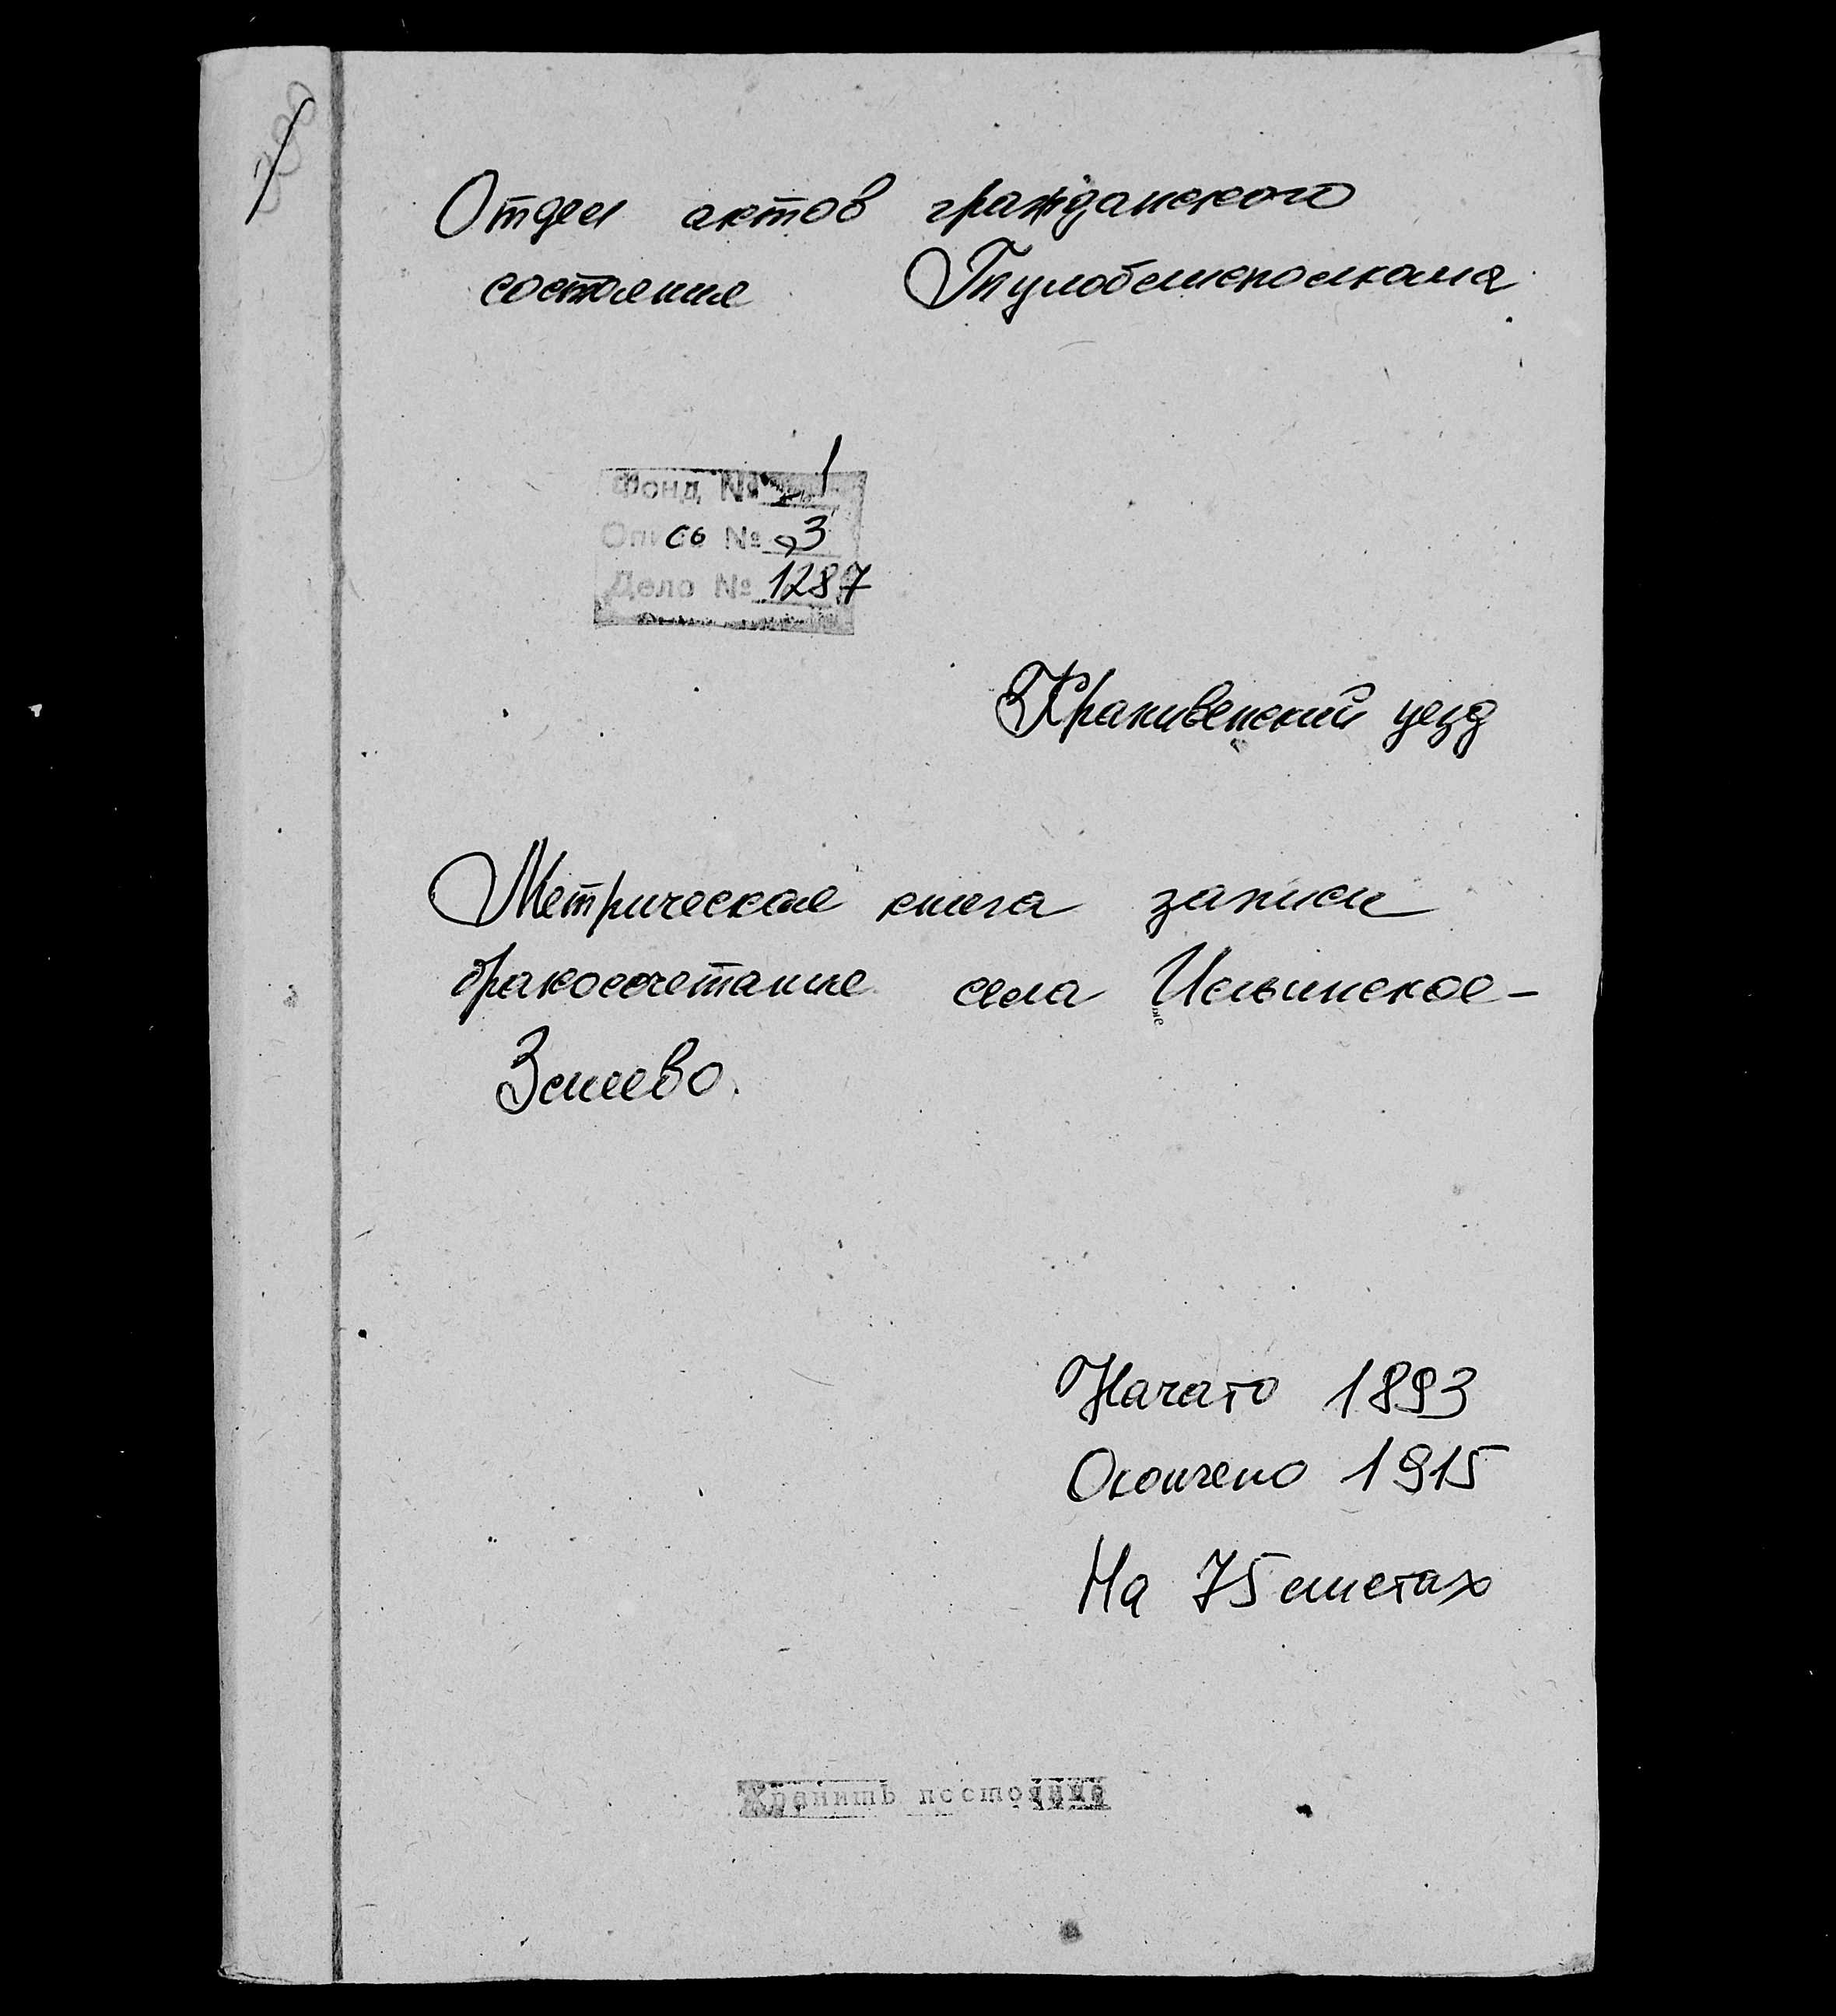 Отдел актов гражданского
состояние Тулоблисполкома
Фонд № 1
Опись № 3
Дело № 1287
Крапивенский уезд
Метрическая книга записи
бракосочетание села Ильинское-
Змеево.
Начато 1893
Окончено 1915
На 75 листах
Хранить постоянно